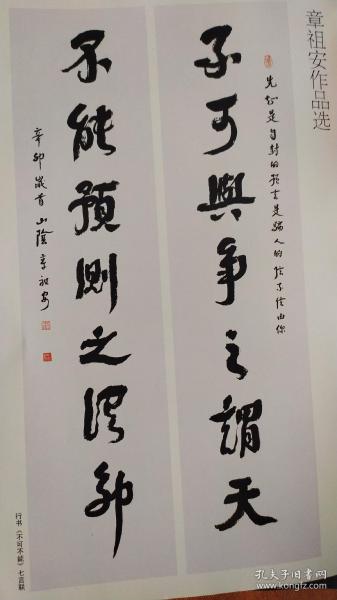 章祖安作品选
先知是自封的 預言是騙人的 信不信由你
不可與爭之謂天
不能預測之謂
辛卯歲首 山陰章祖安
行书《不可不能》七言联
孔夫子旧书网